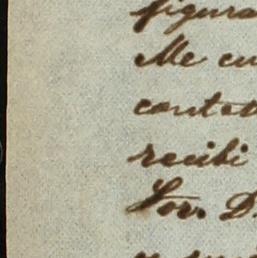 figura
Me cu
contes
recibi
Sor. D